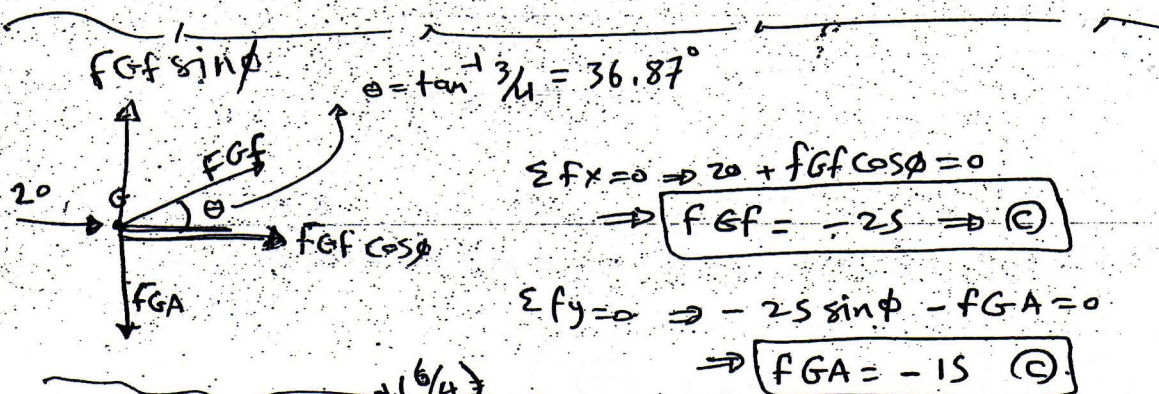 fGf sinϕ
θ = tan⁻¹ 3/4 = 36.87°
FGf
20
G
θ
fGf cosϕ
FGA
Σfx=0 ⇒ 20 + fGf cosϕ = 0
⇒ fGf = -25 ⇒ Ⓒ
Σfy=0 ⇒ - 25 sinϕ - fGA = 0
⇒ fGA = -15 Ⓒ
(6/4)